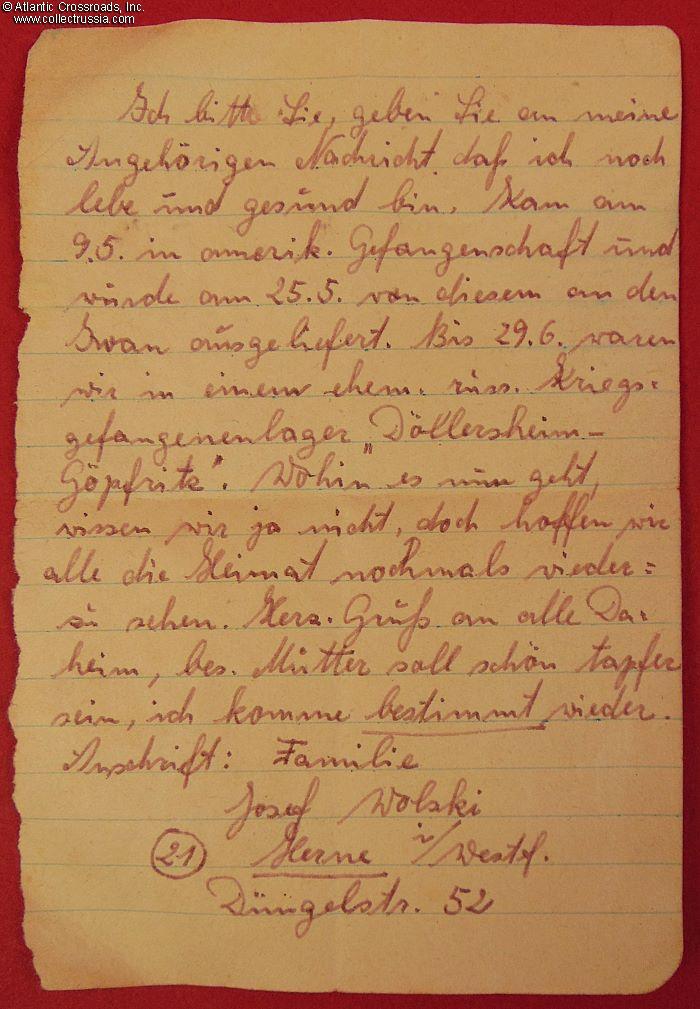 © Atlantic Crossroads, Inc.
www.collectrussia.com
Ich bitte Sie, geben Sie an meine
Angehörigen Nachricht, daß ich noch
lebe und gesund bin. Kam am
9.5. in amerik. Gefangenschaft und
wurde am 25.5. von diesem an den
Iwan ausgeliefert. Bis 29.6. waren
wir in einem ehem. russ. Kriegs=
gefangenenlager "Döllersheim-
Göpfritz". Wohin es nun geht,
wissen wir ja nicht, doch hoffen wir
alle die Heimat nochmals wieder=
zu sehen. Herz. Gruß an alle Da=
heim, bes. Mutter soll schön tapfer
sein, ich komme bestimmt wieder.
Anschrift: Familie
Josef Wolski
21 Herne i/Westf.
Düngelstr. 52